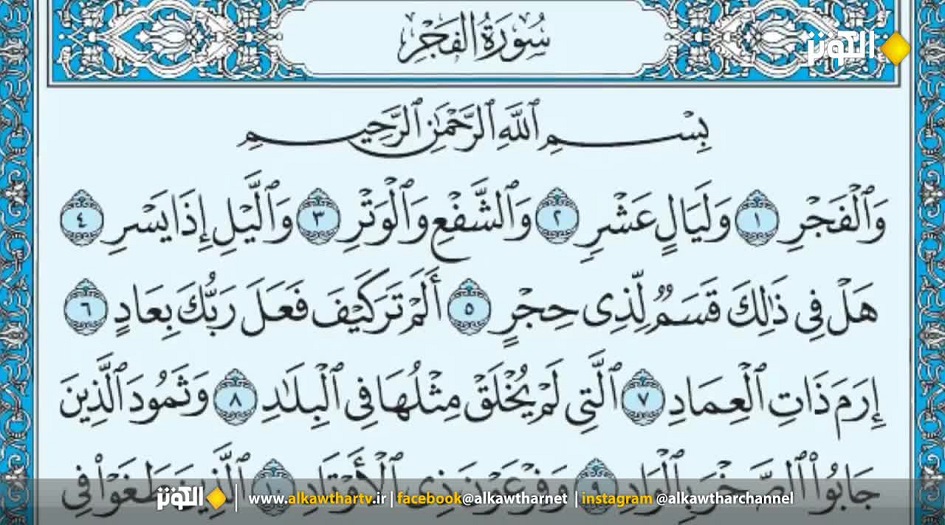 سُورَةُ الفَجۡرِ
الكوثر
بِسۡمِ ٱللَّهِ ٱلرَّحۡمَٰنِ ٱلرَّحِيمِ
وَٱلۡفَجۡرِ ١ وَلَيَالٍ عَشۡرٖ ٢ وَٱلشَّفۡعِ وَٱلۡوَتۡرِ ٣ وَٱلَّيۡلِ إِذَا يَسۡرِ ٤
هَلۡ فِي ذَٰلِكَ قَسَمٞ لِّذِي حِجۡرٍ ٥ أَلَمۡ تَرَ كَيۡفَ فَعَلَ رَبُّكَ بِعَادٍ ٦
إِرَمَ ذَاتِ ٱلۡعِمَادِ ٧ ٱلَّتِي لَمۡ يُخۡلَقۡ مِثۡلُهَا فِي ٱلۡبِلَٰدِ ٨ وَثَمُودَ ٱلَّذِينَ
جَابُواْ ٱلصَّخۡرَ بِٱلۡوَادِ ٩ وَفِرۡعَوۡنَ ذِي ٱلۡأَوۡتَادِ ١٠ ٱلَّذِينَ طَغَوۡاْ فِي
الكوثر | www.alkawthartv.ir | facebook@alkawtharnet | instagram @alkawtharchannel